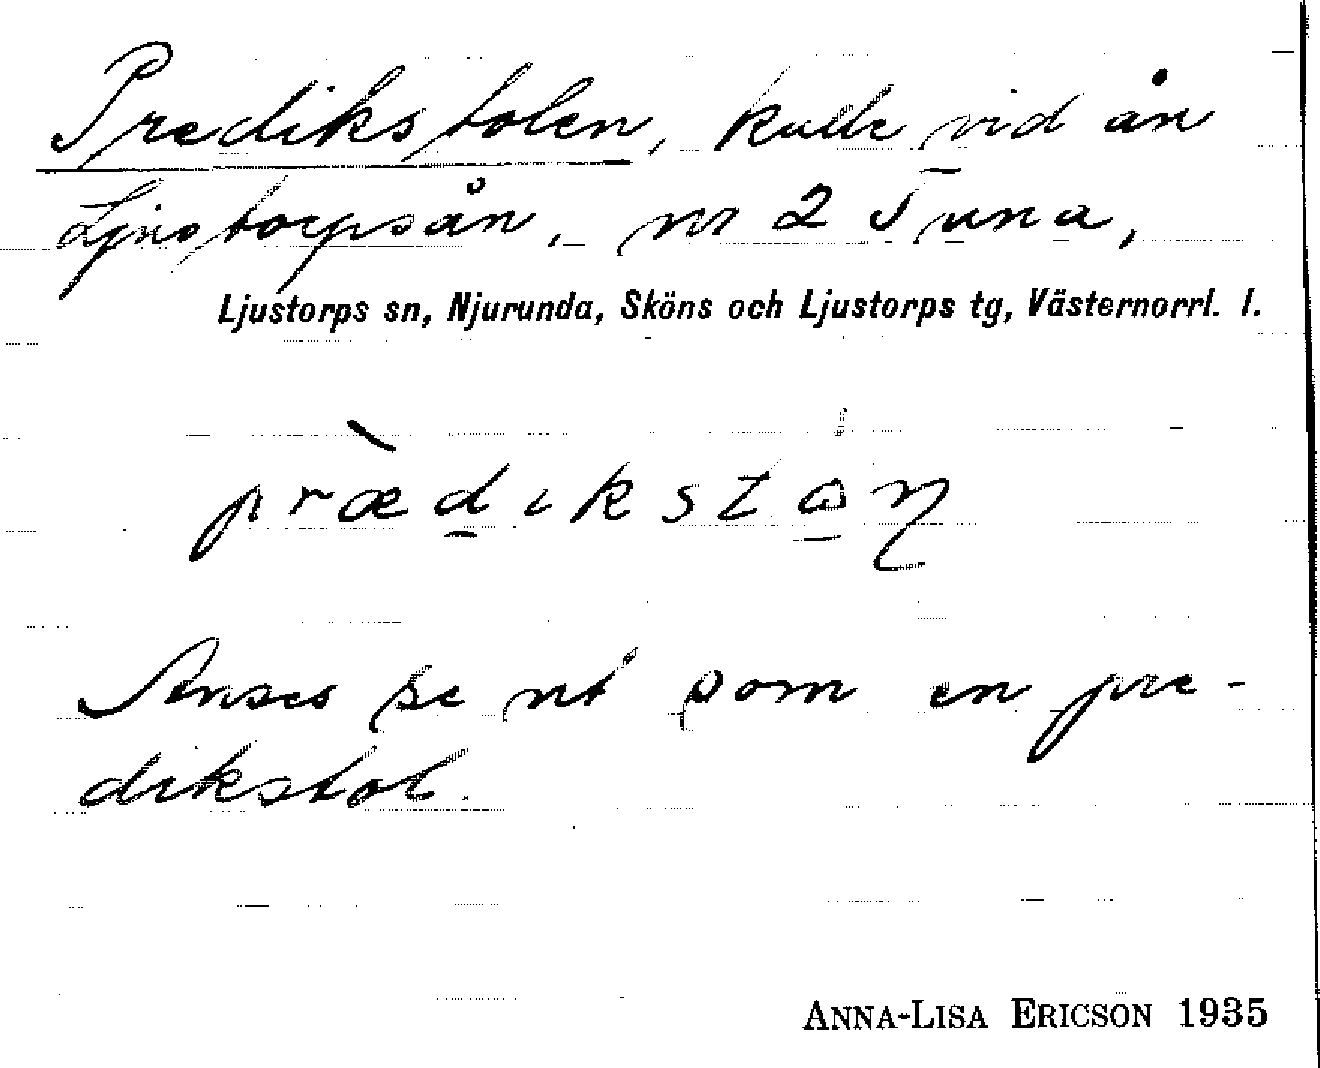 Predikstolen, kulle vid ån
Ljustorpsån, nr 2 Tuna,
Ljustorps sn, Njurunda, Sköns och Ljustorps tg, Västernorrl. l.
præ̀dikstɷŋ
Anses se ut som en pre-
dikstol.
ANNA-LISA ERICSON 1935